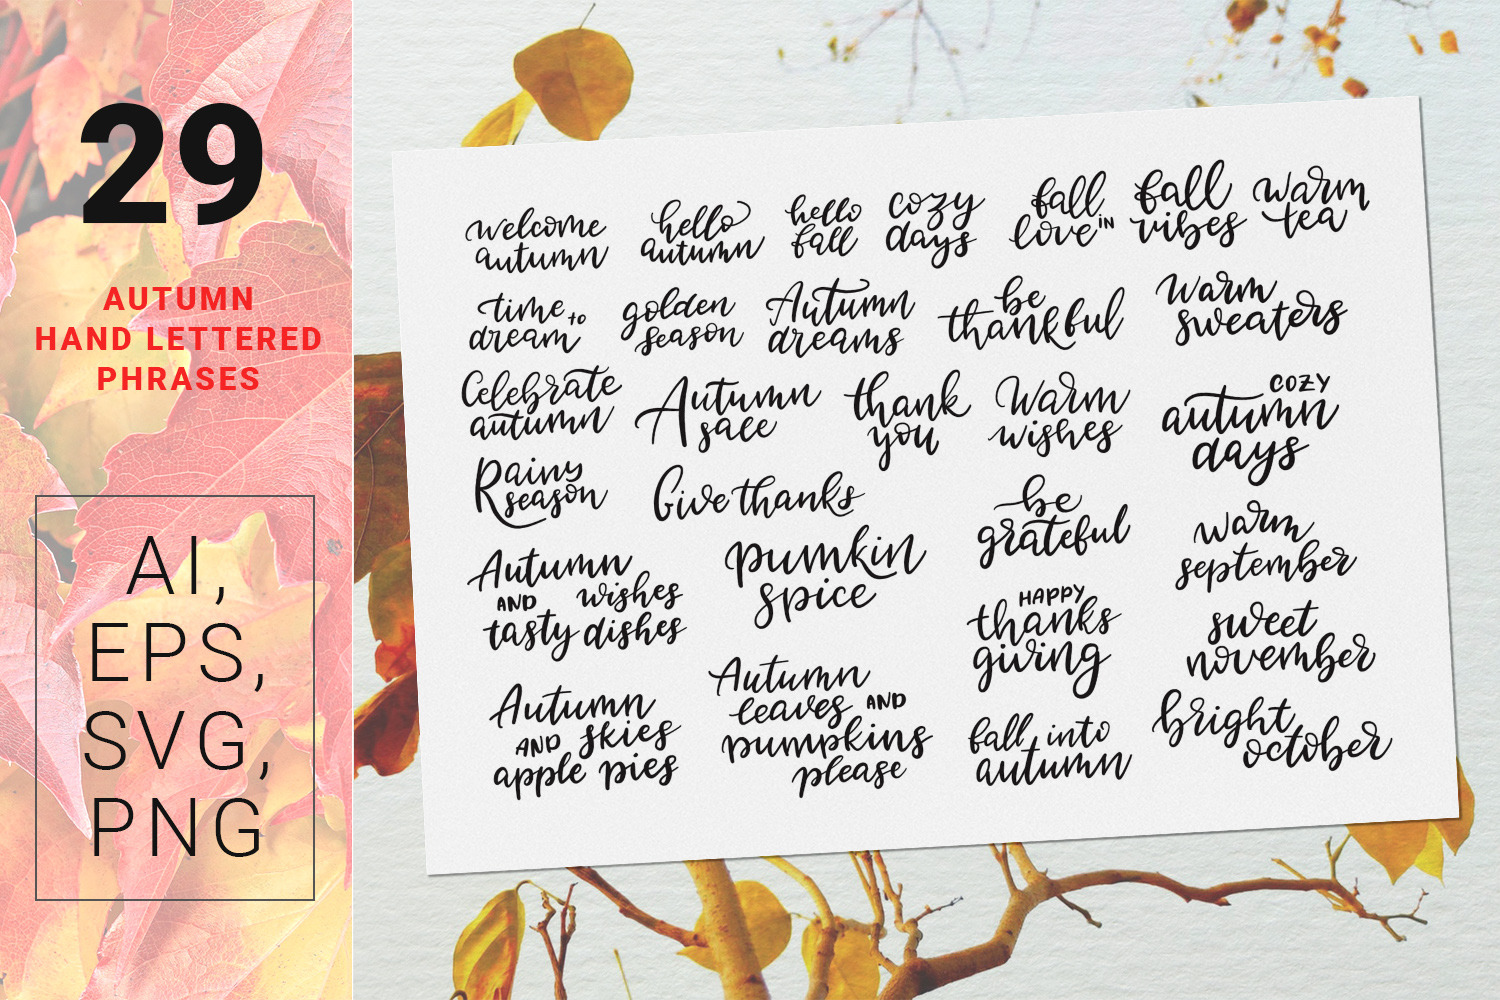 29
AUTUMN
HAND LETTERED
PHRASES
AI,
EPS,
SVG,
PNG
welcome
autumn
hello
autumn
hello
fall
cozy
days
fall
love IN
fall
vibes
warm
tea
time to
dream
golden
season
Autumn
dreams
be
thankful
Warm
sweaters
Celebrate
autumn
Autumn
sale
thank
you
Warm
wishes
COZY
autumn
days
Rainy
season
Give thanks
be
grateful
warm
september
Autumn
AND wishes
tasty dishes
pumkin
spice
HAPPY
thanks
giving
sweet
november
Autumn
AND skies
apple pies
Autumn
leaves AND
pumpkins
please
fall into
autumn
bright
october